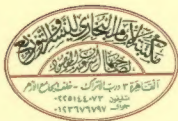 مكتبة الإمام البخاري للنشر والتوزيع
القاهرة ٣ درب الأتراك - خلف الجامع الأزهر
تليفون ٠٢٢٥١٤٤٠٧٣
جوال ٠١٢٣٦٧٦٧٩٧